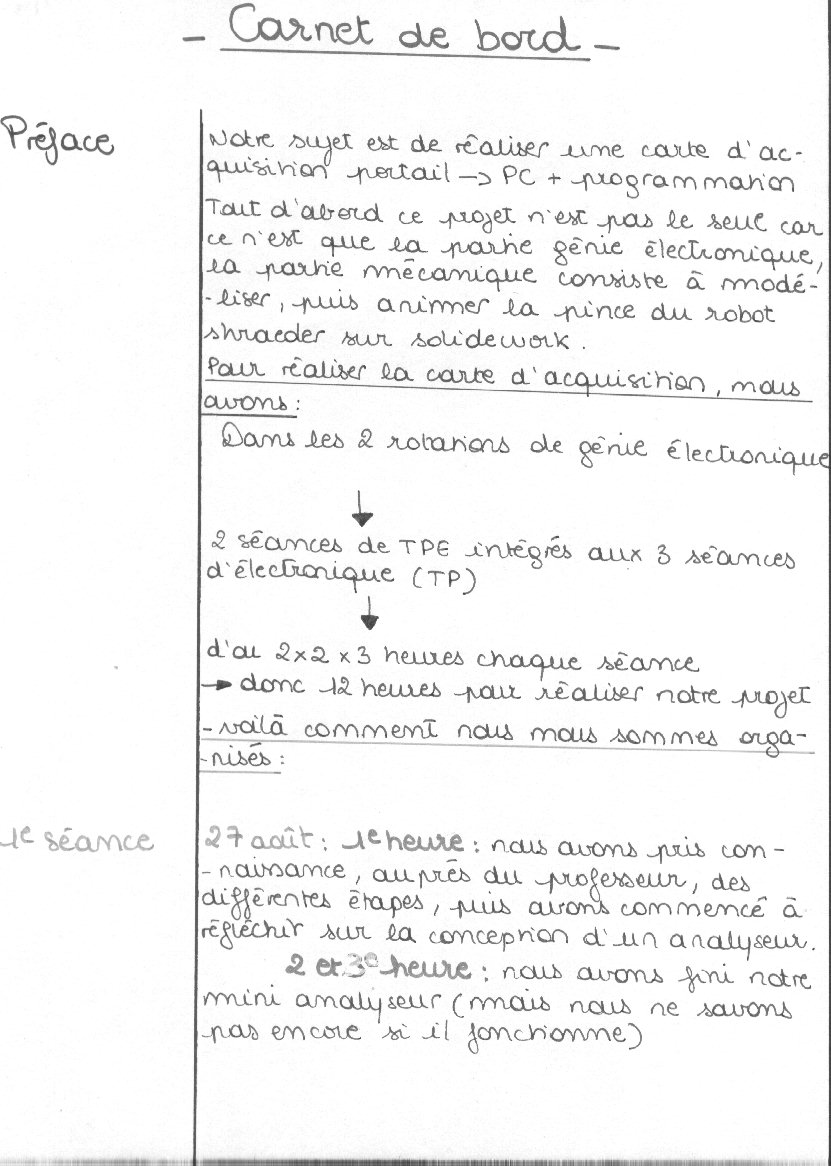 - Carnet de bord -
Préface
Notre sujet est de réaliser une carte d'ac-
quisition portail -> PC + programmation
Tout d'abord ce projet n'est pas le seul car
ce n'est que la partie génie électronique,
la partie mécanique consiste à modé-
-liser, puis animer la pince du robot
shraeder sur solidework.
Pour réaliser la carte d'acquisition, nous
avons :
Dans les 2 rotations de génie électronique
↓
2 séances de TPE intégrés aux 3 séances
d'électronique (TP)
↓
d'ou 2x2x3 heures chaque séance
→ donc 12 heures pour réaliser notre projet
- voilà comment nous nous sommes orga-
-nisés :
1e séance
27 août : 1e heure : nous avons pris con-
-naissance, auprès du professeur, des
différentes étapes, puis avons commencé à
réfléchir sur la conception d'un analyseur.
2 et 3e heure : nous avons fini notre
mini analyseur (mais nous ne savons
pas encore si il fonctionne)